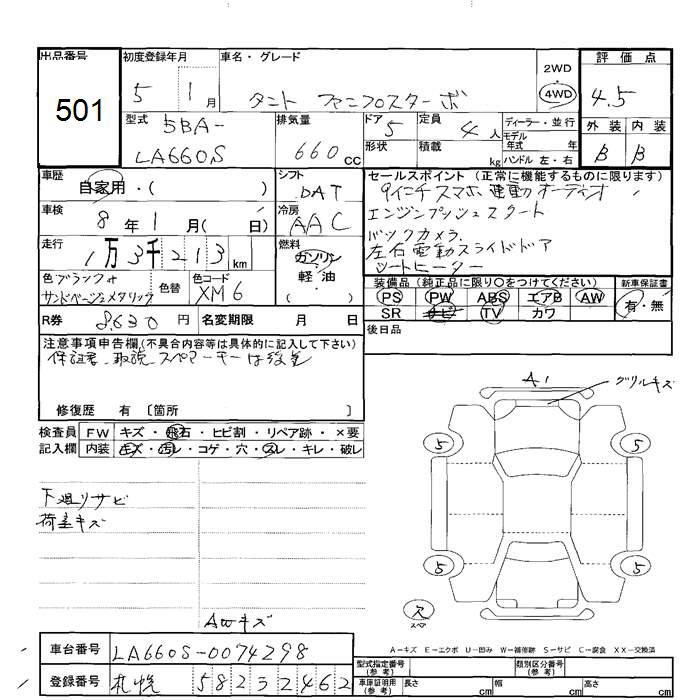 出品番号
501
初度登録年月
5 1月
車名・グレード
タント ファンクロスターボ
2WD
4WD
評価点
4.5
外装 内装
B B
型式
5BA-
LA660S
排気量
660cc
ドア 5
形状
定員 4人
積載 kg
ディーラー・並行
モデル
年式 年
ハンドル 左・右
車歴
自家用・( )
シフト
DAT
車検
8年1月( 日)
冷房
AAC
走行
1万3千213km
燃料
ガソリン
軽・油
( )
色 ブラック×
サンドベージュメタリック
色替
色コード
XM6
R券 8630円
名変期限 月 日
セールスポイント(正常に機能するものに限ります)
9インチスマホ連動オーディオ
エンジンプッシュスタート
バックカメラ
左右電動スライドドア
シートヒーター
装備品(純正品に限り○をつけてください)
PS PW ABS エアB AW
SR ナビ TV カワ
新車保証書
有・無
後日品
注意事項申告欄(不具合内容等は具体的に記入して下さい)
保証書、取説、スペアーキーは後気
修復歴 有 〔箇所 〕
検査員
記入欄
FW キズ・飛石・ヒビ割・リペア跡・×要
内装 キズ・汚レ・コゲ・穴・スレ・キレ・破レ
下廻りサビ
荷室キズ
AWキズ
A1
グリルキズ
5
5
5
5
ス
スペア
A−キズ E−エクボ U−凹み W−補修跡 S−サビ C−腐食 XX−交換済
車台番号 LA660S-0074298
登録番号 札幌 582 32462
型式指定番号
(参考)
類別区分番号
(参考)
車庫証明用
(参考)
長さ cm
幅 cm
高さ cm